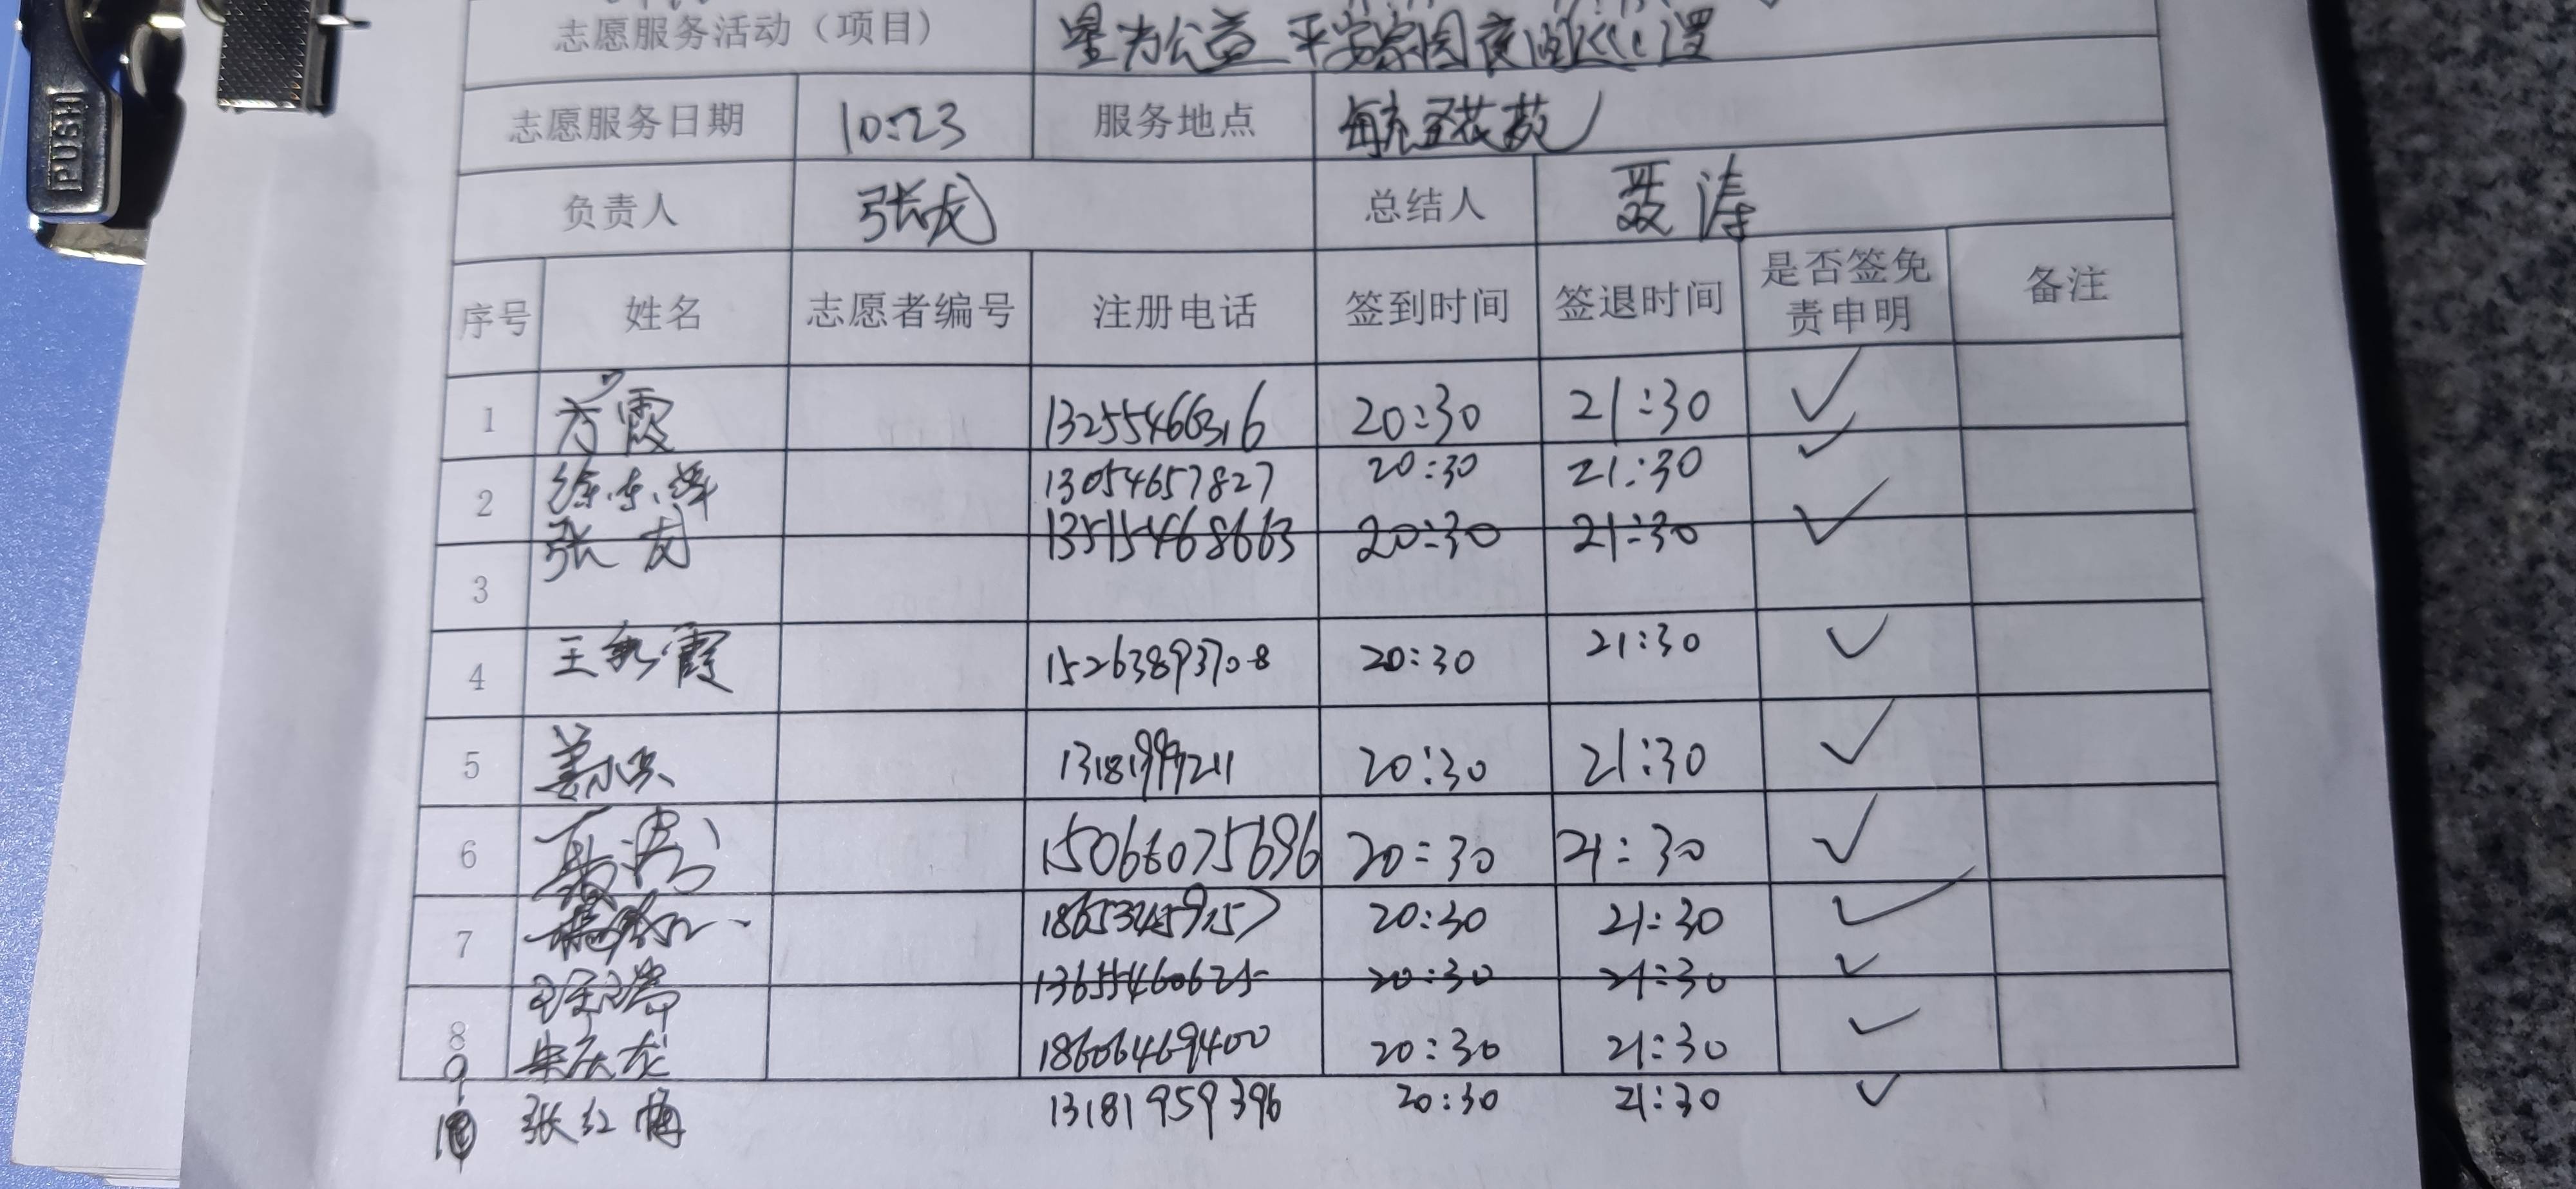 PUSH
志愿服务活动（项目） 星为公益 平安家园夜间巡逻
志愿服务日期 10:23 服务地点
负责人 张龙 总结人 聂涛
序号 姓名 志愿者编号 注册电话 签到时间 签退时间 是否签免责申明 备注
1 霞 13255466316 20:30 21:30 ✓
2 徐东 13054657827 20:30 21:30 ✓
3 张龙 13515468663 20:30 21:30 ✓
4 王 霞 15263893708 20:30 21:30 ✓
5 姜 20:30 21:30 ✓
6 聂涛 15066075696 20:30 21:30 ✓
7 20:30 21:30 ✓
13655460625 20:30 21:30 ✓
8 18606469400 20:30 21:30 ✓
9
10 张红梅 13181959396 20:30 21:30 ✓